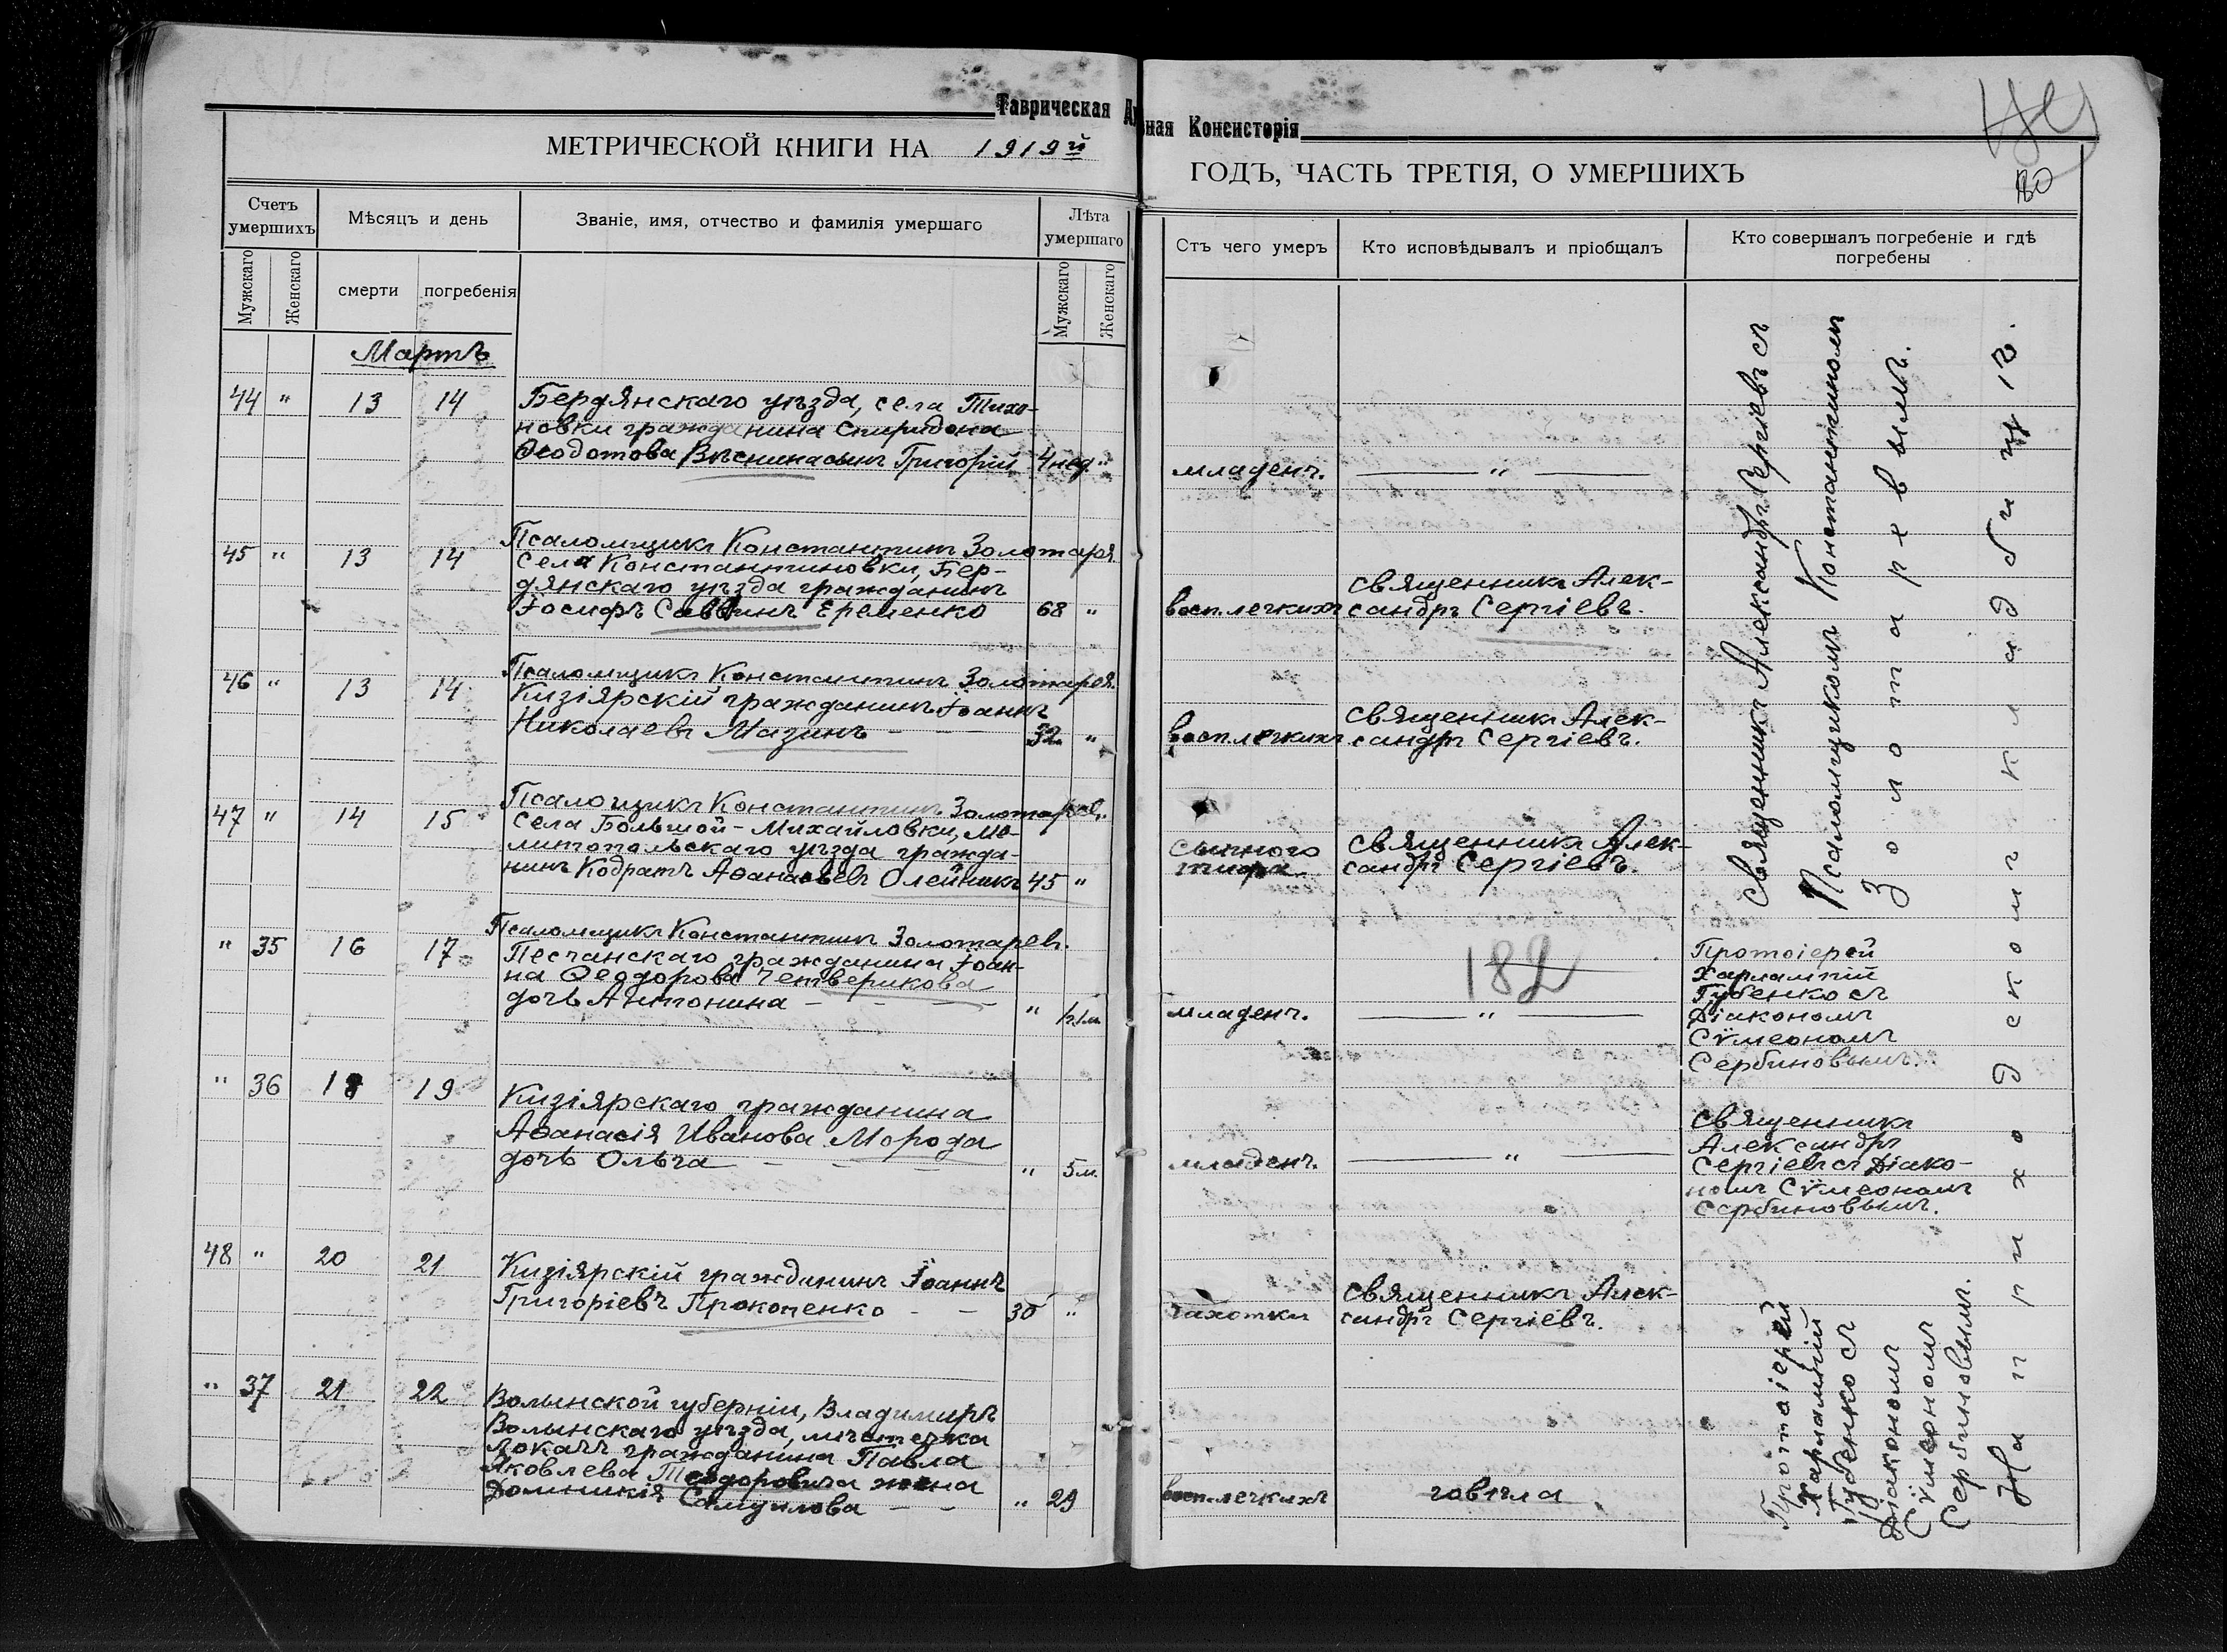 Таврическая
ная Консисторія
МЕТРИЧЕСКОЙ КНИГИ НА 1919й
ГОДЪ, ЧАСТЬ ТРЕТІЯ, О УМЕРШИХЪ
180
Счетъ умершихъ
Мѣсяцъ и день
Званіе, имя, отчество и фамилія умершаго
Лѣта умершаго
Стъ чего умеръ
Кто исповѣдывалъ и пріобщалъ
Кто совершалъ погребеніе и гдѣ погребены
Мужскаго
Женскаго
смерти
погребенія
Мужскаго
Женскаго
Мартъ
44 " 13 14
Бердянскаго уѣзда, села Тихо-
новки гражданина Спиридона
Ѳеодотова Вѣснина сынъ Григорій 4 нед. "
младенч. "
Псаломщикъ Константинъ Золотарев
45 " 13 14
Села Константиновки, Бер-
дянскаго уѣзда гражданинъ
Іосифъ Саввинъ Еременко 68 "
восп. легкихъ
Священникъ Алек-
сандръ Сергіевъ.
Псаломщикъ Константинъ Золотарев.
46 " 13 14
Кизіярскій гражданинъ Іоаннъ
Николаевъ Мазинъ 32 "
восп. легкихъ
Священникъ Алек-
сандръ Сергіевъ.
Псаломщикъ Константинъ Золотарев.
47 " 14 15
Села Большой-Михайловки, Ме-
литопольскаго уѣзда гражда-
нинъ Кодратъ Аѳанасьевъ Олейникъ 45 "
сыпного
тифа
Священникъ Алек-
сандръ Сергіевъ.
Псаломщикъ Константинъ Золотаревъ.
" 35 16 17
Песчанскаго гражданина Іоан-
на Ѳеодорова Четверикова
дочь Антонина "
младенч. "
182
Протоіерей
Харлампій
Губенко съ
Діакономъ
Сѵмеономъ
Сербиновымъ.
" 36 18 19
Кизіярскаго гражданина
Аѳанасія Иванова Морода
дочь Ольга " 5 м.
младенч. "
Священникъ
Александръ
Сергіевъ съ Діако-
номъ Сѵмеономъ
Сербиновымъ.
48 " 20 21
Кизіярскій гражданинъ Іоаннъ
Григоріевъ Прокопенко 30 "
чахотки
Священникъ Алек-
сандръ Сергіевъ.
" 37 21 22
Волынской губерніи, Владимиръ
Волынскаго уѣзда, мѣстечка
Локачъ гражданина Павла
Яковлева Теодоровича жена
Домникія Самуилова " 29
восп. легкихъ
говѣла
Священникъ Александръ Сергіевъ съ
Псаломщикомъ Константиномъ
Золотаревымъ.
Протоіерей
Харлампій
Губенко съ
Діакономъ
Сѵмеономъ
Сербиновымъ.
На приходскомъ кладбищѣ.